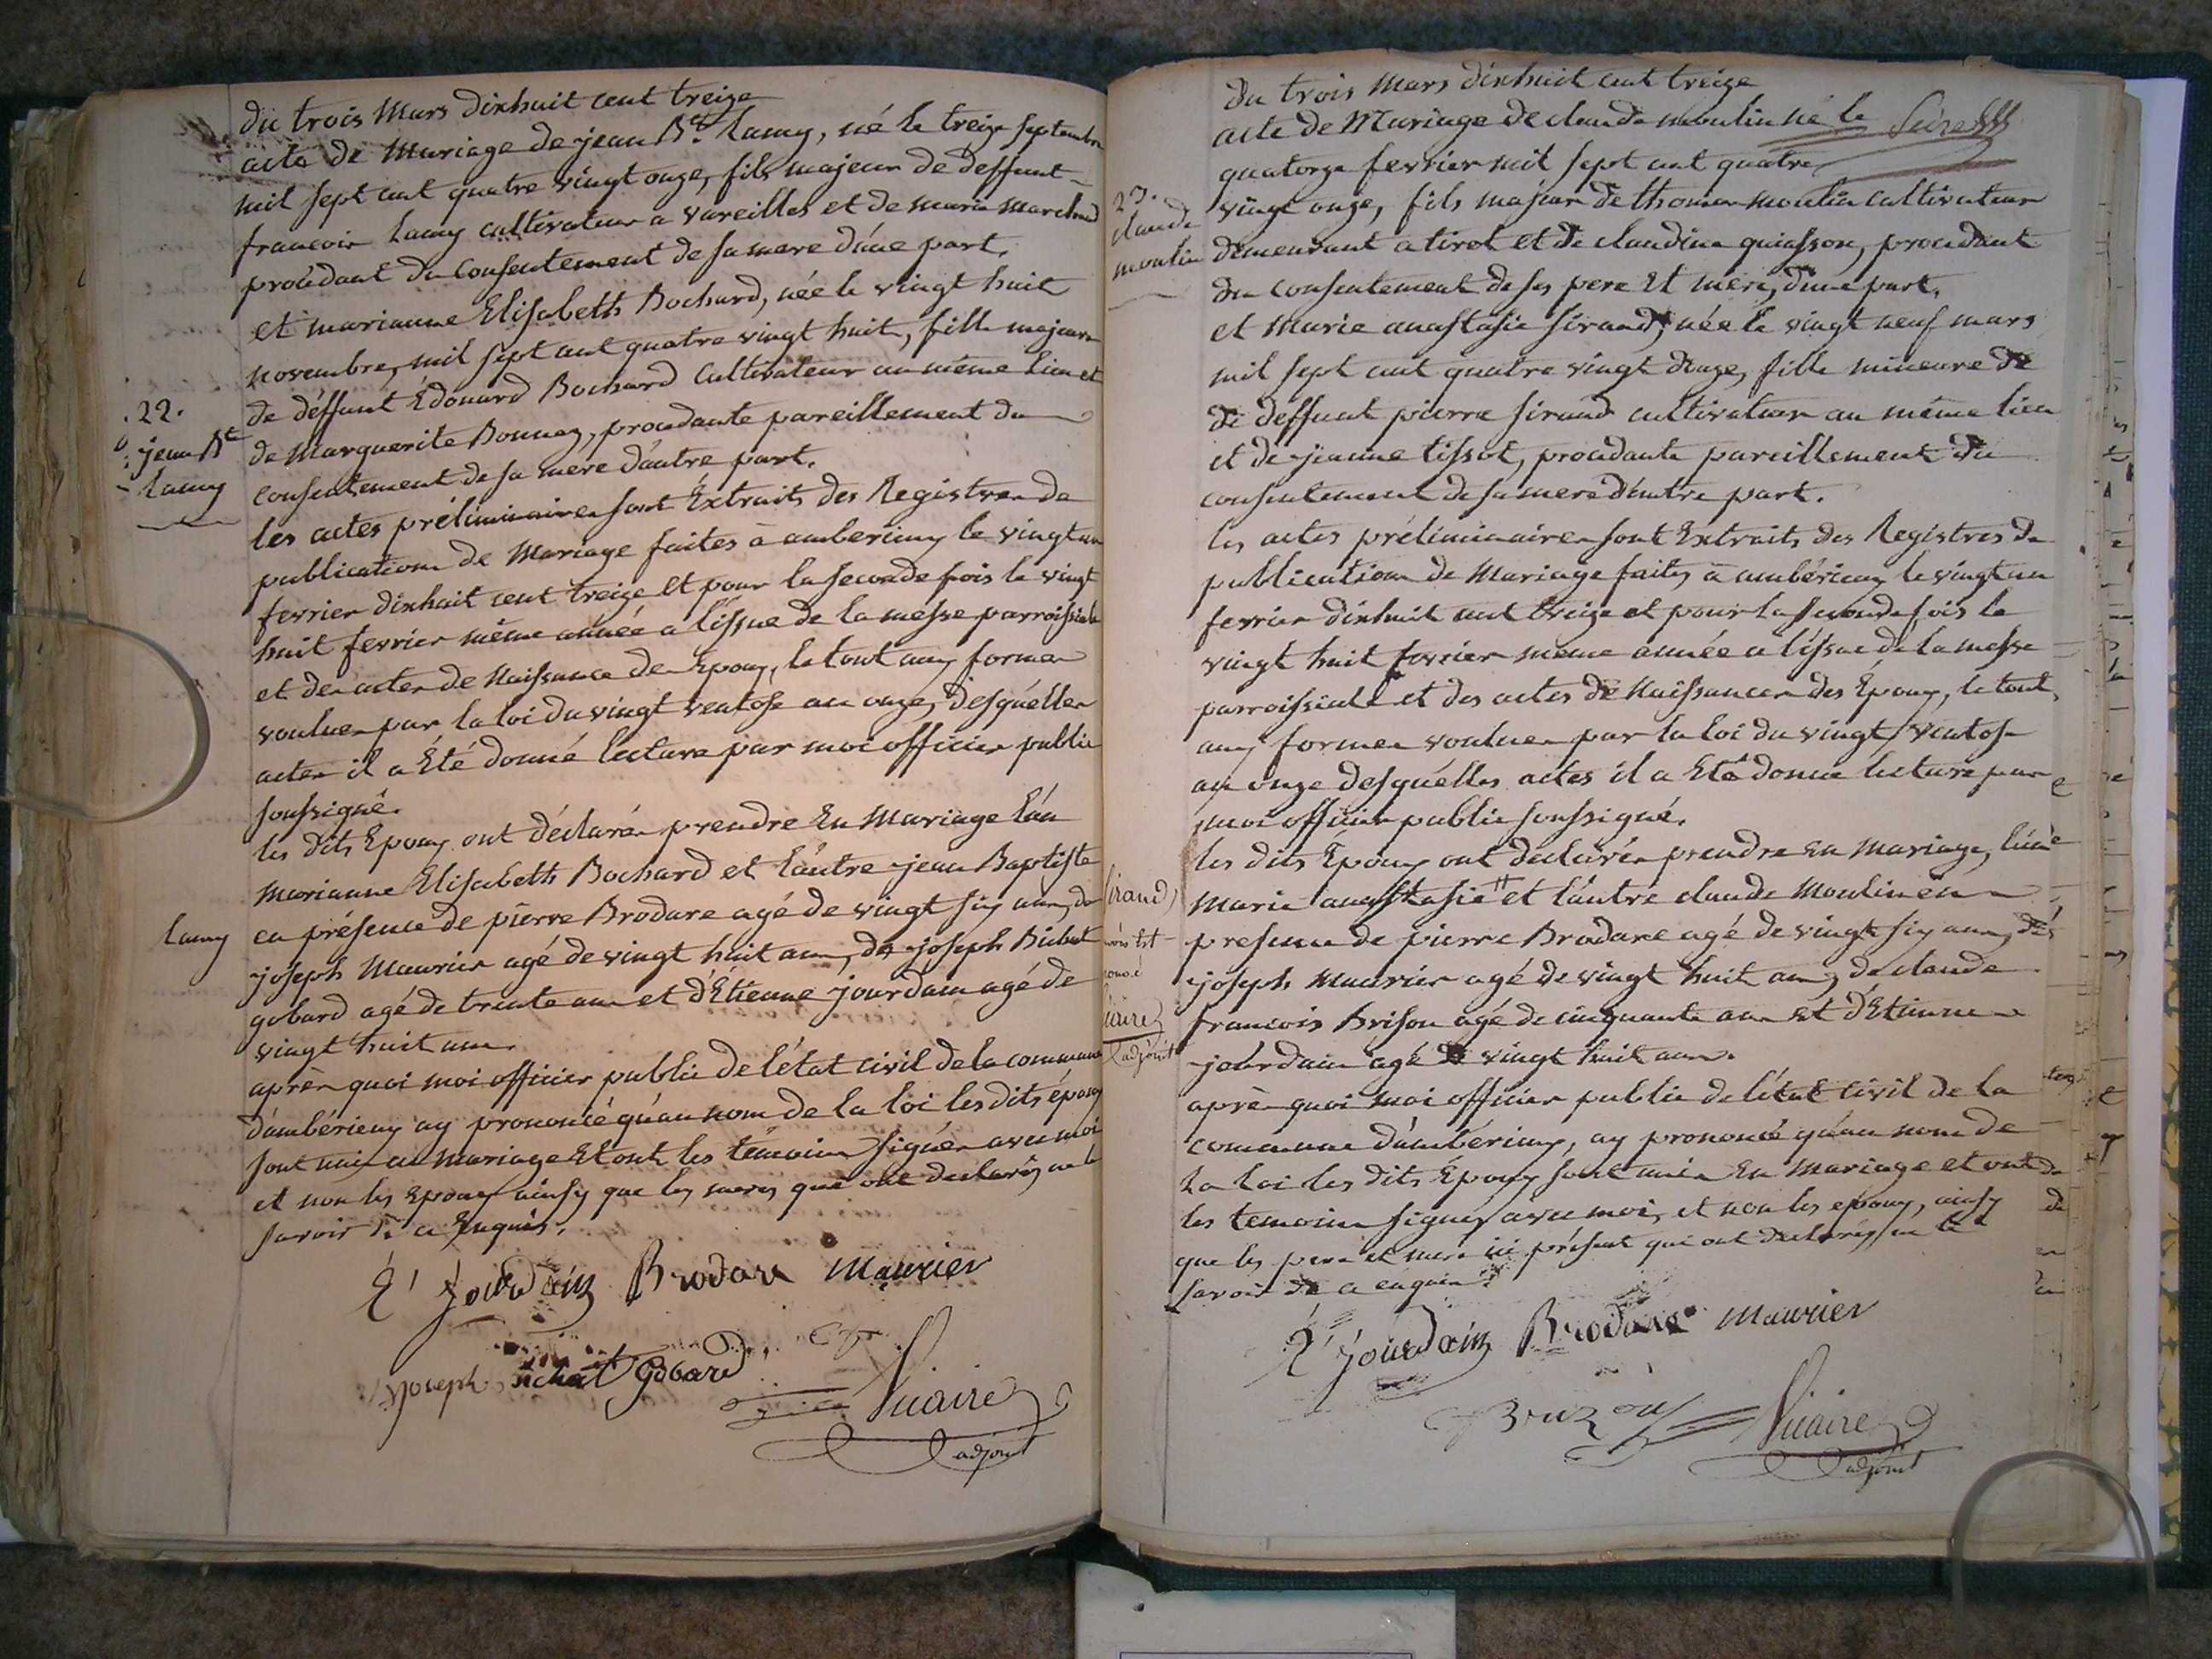 du trois Mars dixhuit cent treize
acte de Mariage de jean Bte. Lamy, né le treize septembre
mil sept cent quatre vingt onze, fils majeur de deffunt
francois Lamy cultivateur a vareilles et de marie marchand
procédant du consentement de sa mere d'une part.
et marianne Elisabeth Bochard, née le vingt huit
novembre, mil sept cent quatre vingt huit, fille majeure
de déffunt Édouard Bochard Cultivateur au même lieu et
de Marguerite Bonnaz, procedante pareillement du
consentement de sa mère d'autre part.
22.
jean Bte
Lamy
les actes préliminaires sont Extraits des Registres de
publications de Mariage faites à amberieux le vingt un
fevrier dixhuit cent treize et pour la seconde fois le vingt
huit fevrier même année a l'issue de la messe parroissiale
et des actes de Naissance des Epoux, le tout aux formes
voulues par la loi du vingt ventose an onze, desquelles
actes il a Été donné lecture par moi officier public
soussigné.
les dits Epoux ont déclarés prendre En Mariage l'un
Marianne Elisabeth Bochard et l'autre jean Baptiste
Lamy
en présence de pierre Brodare agé de vingt six ans, de
joseph Maurier agé de vingt huit ans, de joseph Bichat
gobard agé de trente ans et d'Étienne jourdain agé de
vingt huit ans.
après quoi moi officier public de l'état civil de la commune
d'ambérieux ay prononcé qu'au nom de la loi les dits époux
sont unis en mariage Et ont les témoins signés avec moi
et non les Epoux ainsy que les meres qui ont declarés ne le
savoir de ce Enquis.
E' Jourdain Brodare Maurier
joseph Bichat Gobard
Vicaire
adjoint
du trois Mars dixhuit cent treize
acte de Mariage de claude moulin né le
quatorze fevrier mil sept cent quatre
vingt onze, fils majeur de thomas moulin cultivateur
demeurant a tiret et de claudine guiasson, procedant
du consentement de ses pere et mere, d'une part,
23.
claude
moulin
et Marie anastasie sirand, née le vingt neuf mars
mil sept cent quatre vingt douze, fille mineure de
de deffunt pierre sirand cultivateur au même lieu
et de jeanne tissot, procedante pareillement du
consentement de sa mere d'autre part.
les actes préliminaires sont Extraits des Registres de
publications de Mariage faites à ambérieux le vingt un
fevrier dixhuit cent treize et pour la seconde fois le
vingt huit fevrier même année a l'issue de la messe
parroissiale et des actes de Naissances des Époux, le tout
aux formes voulues par la loi du vingt ventose
an onze desquelles actes il a Eté donné lecture par
moi officier public soussigné.
les dits Époux ont declarés prendre en mariage, l'un
Marie anastasie et l'autre claude Moulin en
sirand
Vicaire
adjoint
presence de pierre Brodare agé de vingt six ans, de
joseph Maurier agé de vingt huit ans, de claude
francois Brison agé de cinquante ans et d'Etienne
jourdain agé de vingt huit ans.
après quoi moi officier public de l'état civil de la
commune d'ambérieux, ay prononcé qu'au nom de
la loi les dits Époux sont unis En Mariage et ont
les temoins signés avec moi, et non les epoux, ainsy
que les pere et mere ici présent qui ont declarés ne le
savoir de ce enquis.
E' Jourdain Brodare Maurier
Vicaire
adjoint